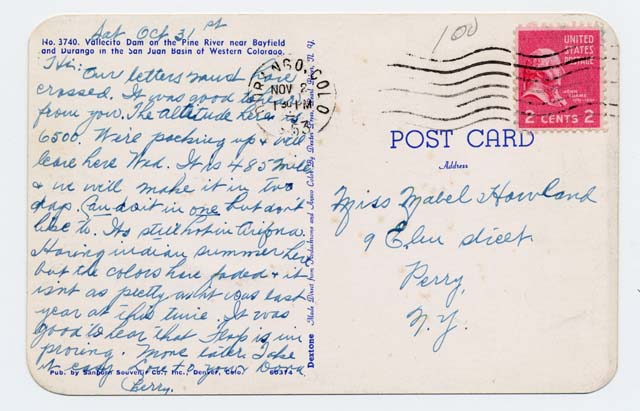 Sat Oct 31st
No. 3740. Vallecito Dam on the Pine River near Bayfield
and Durango in the San Juan Basin of Western Colorado.
Hi: Our letters must have
crossed. It was good to hear
from you. The altitude here is
6500. We're packing up & will
leave here Wed. It is 485 miles
& we will make it in two
days. Can do it in one but don't
like to. Its still hot in Arizona.
Having indian summer here
but the colors have faded & it
isnt as pretty as it was last
year at this time. It was
good to hear that Flop is im
proving. More later. Take
it easy Love to you
Perry.
Pub. by Sanborn Souvenir Co., Inc., Denver, Colo.
60374
Dextone Made Direct from Kodachrome and Ansco Color By Dexter Press, Pearl River, N. Y.
DURANGO, COLO.
NOV 2
1 30 PM
1953
100
UNITED
STATES
POSTAGE
JOHN
ADAMS
2 CENTS 2
POST CARD
Address
Miss Mabel Howland
9 Elm street
Perry,
N.Y.